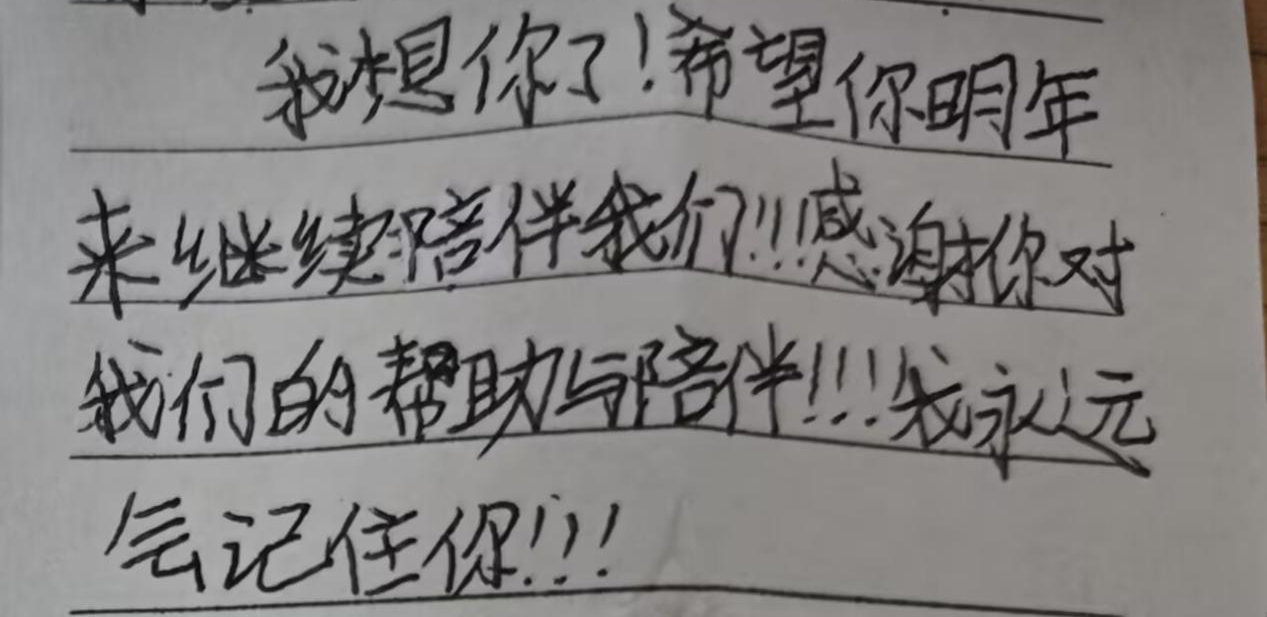 我想你了！希望你明年
来继续陪伴我们!!!感谢你对
我们的帮助与陪伴!!!我永远
会记住你!!!